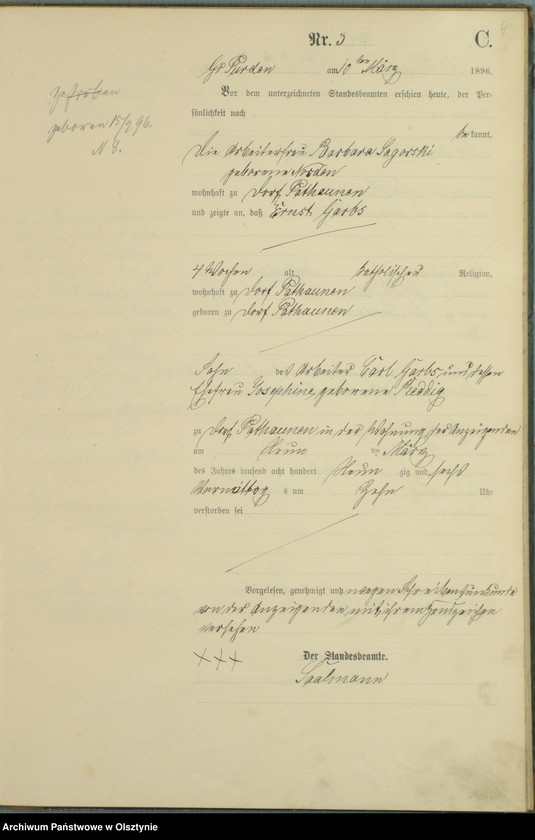 Nr. 3
C.
Gr Purden am 10 ten März 1896.
Vor dem unterzeichneten Standesbeamten erschien heute, der Per-
sönlichkeit nach
be kannt,
die Arbeiterfrau Barbara Sagorski
geborene Norden
wohnhaft zu Dorf Pathaunen
und zeigte an, daß Ernst Garbs
4 Wochen alt, katholischer Religion,
wohnhaft zu Dorf Pathaunen
geboren zu Dorf Pathaunen
Sohn des Arbeiter Carl Garbs und dessen
Ehefrau Josephine, geborene
zu Dorf Pathaunen in der Wohnung der Anzeigenden
am Neun ten März
des Jahres tausend acht hundert Neun zig und sechs
Vormittag s um Zehn Uhr
verstorben sei
Vorgelesen, genehmigt und wegen Schreibensunkunde
von der Anzeigenden mit ihrem Handzeichen
versehen
+++
Der Standesbeamte.
Saalmann
geboren 96.
N
Archiwum Państwowe w Olsztynie